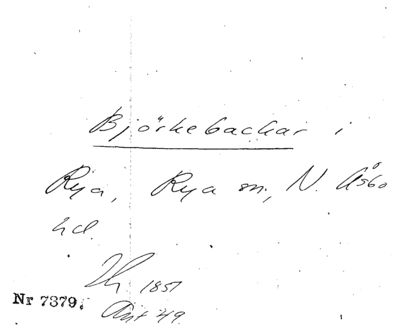 Björkebackar i
Rya, Rya sn, N. Åsbo
hd.
1851
Nr 7379.